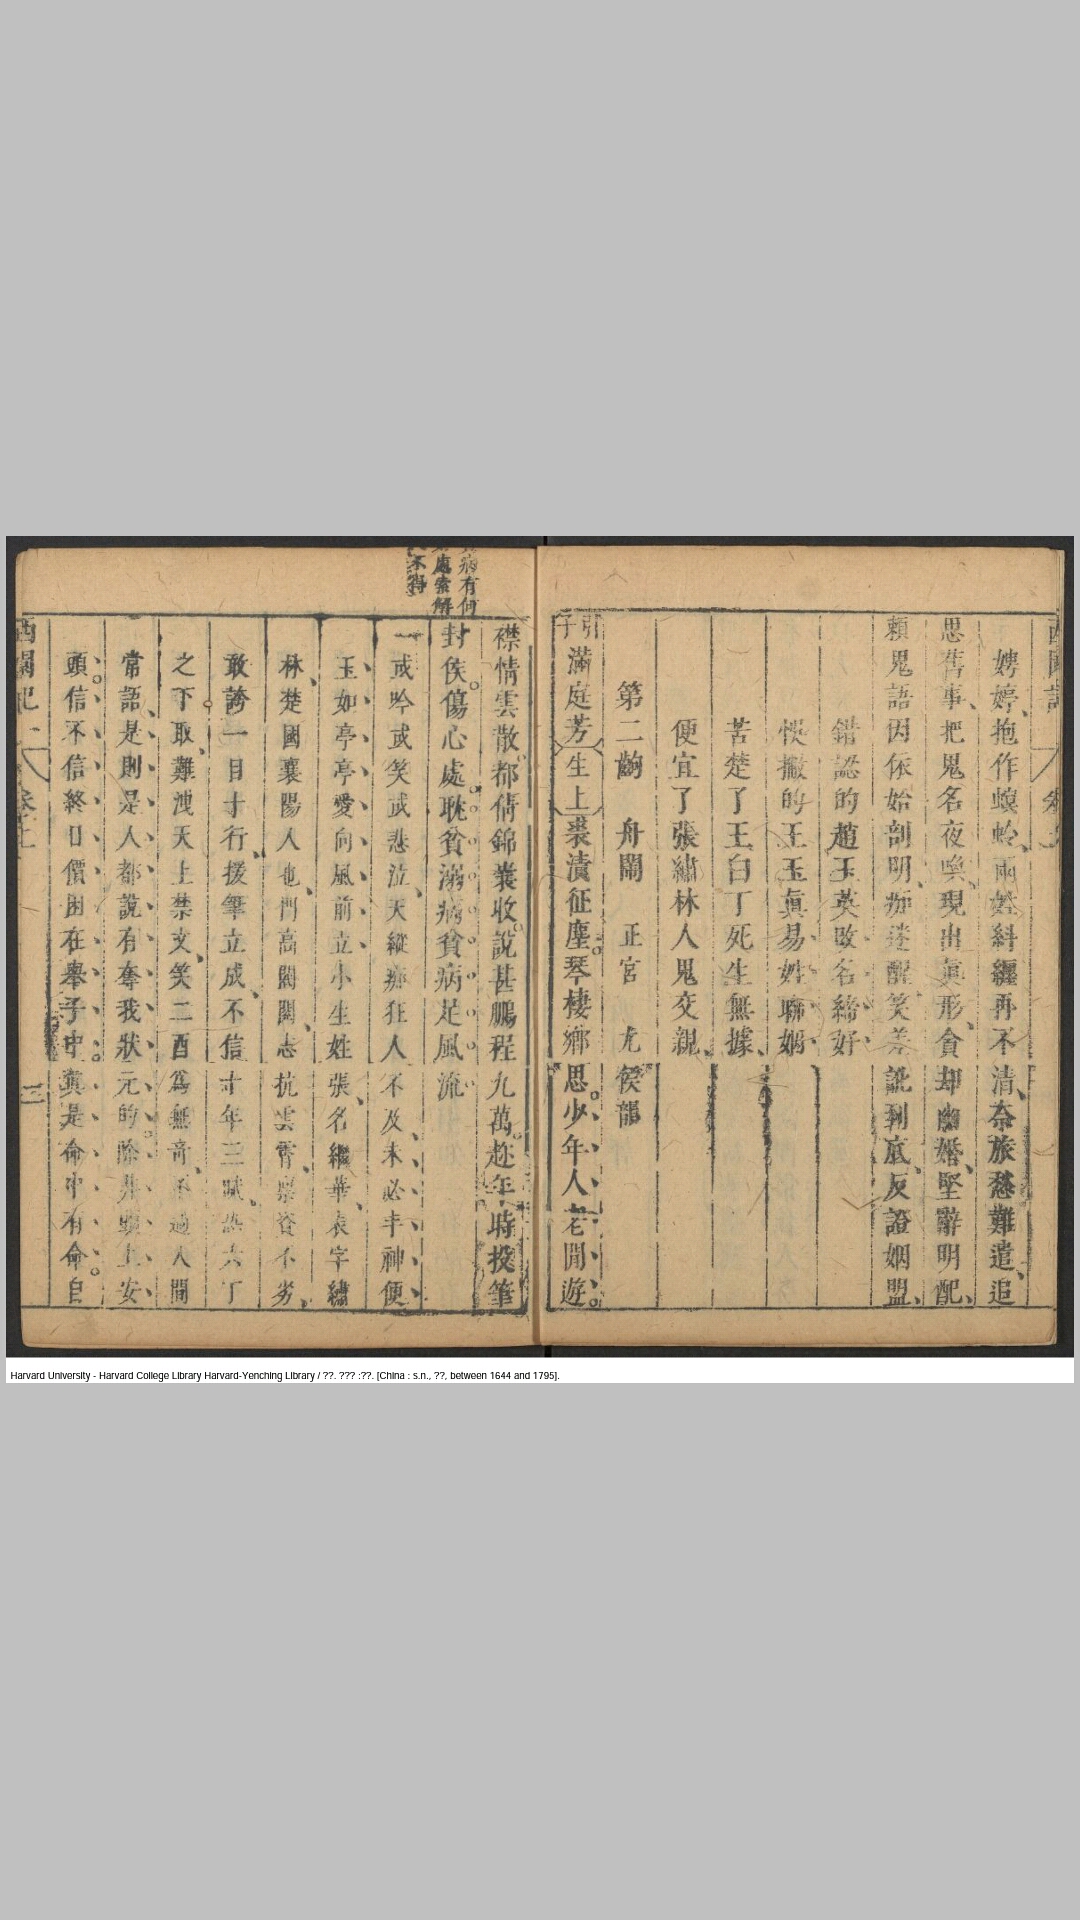 娉婷抱作螟蛉兩姓糾纏再不清奈旅愁難遣追
思舊事把鬼名夜喚現出眞形貪却幽婚堅辭明配
賴鬼語因依始剖明痴迷醒笑差訛到底反證姻盟
錯認的趙玉英敗名締好
慔撇的王玉眞易姓聯姻
苦楚了王白丁死生無據
便宜了張繡林人鬼交親
第二齣 舟鬧 正宮 尤侯韻
引子滿庭芳 生上 裘漬征塵琴棲鄉思少年人老閒遊
襟情雲散都倩錦囊收說甚鵬程九萬趂年時投筆
封侯傷心處耽貧溺病貧病足風流
病有何
處索解
不得
一或吟或笑或悲泣天縱痴狂人不及未必丰神便
玉如亭亭愛向風前立小生姓張名繼華表字繡
林楚國襄陽人也門高閥閱志抗雲霄稟資不劣
敢誇一目十行援筆立成不信十年三賦無六丁
之下取難洩天上禁文笑二酉爲無奇不過人間
常語是則是人都說有奪我狀元的除非頭上安
頭信不信終日價困在舉子中眞是命中有命自
三
Harvard University - Harvard College Library Harvard-Yenching Library / ??. ??? :??. [China : s.n., ??, between 1644 and 1795].